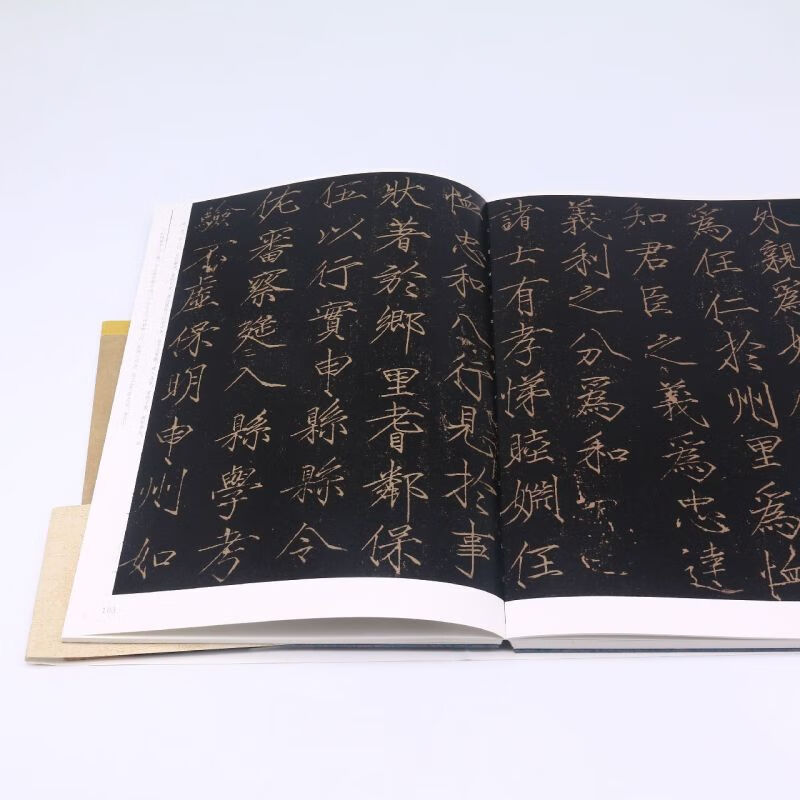 外親爲
爲任仁於州里爲恤
知君臣之義爲忠達
義利之分爲和
諸士有孝悌睦婣任
恤忠和八行見於事
狀著於鄉里耆鄰保
伍以行實申縣縣令
佐審察延入縣學考
驗不虛保明申州如